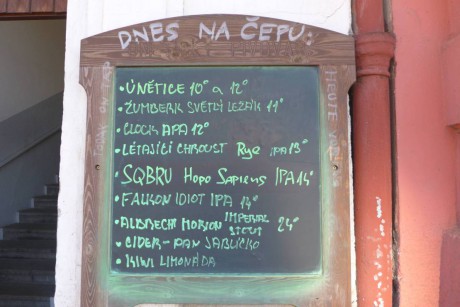 DNES NA ČEPU:
• ÚNĚTICE 10° a 12°
• ŽUMBERK SVĚTLÝ LEŽÁK 11°
• CLOCK APA 12°
• LÉTAJÍCÍ CHROUST Rye IPA 13°
• SQBRU Hopo Sapiens IPA 14°
• FALKON IDIOT IPA 14°
• ALBRECHT MORION IMPERIAL STOUT 24°
• CIDER - PAN JABLÍČKO
• KIWI LIMONÁDA
TODAY ON TAP
HEUTE